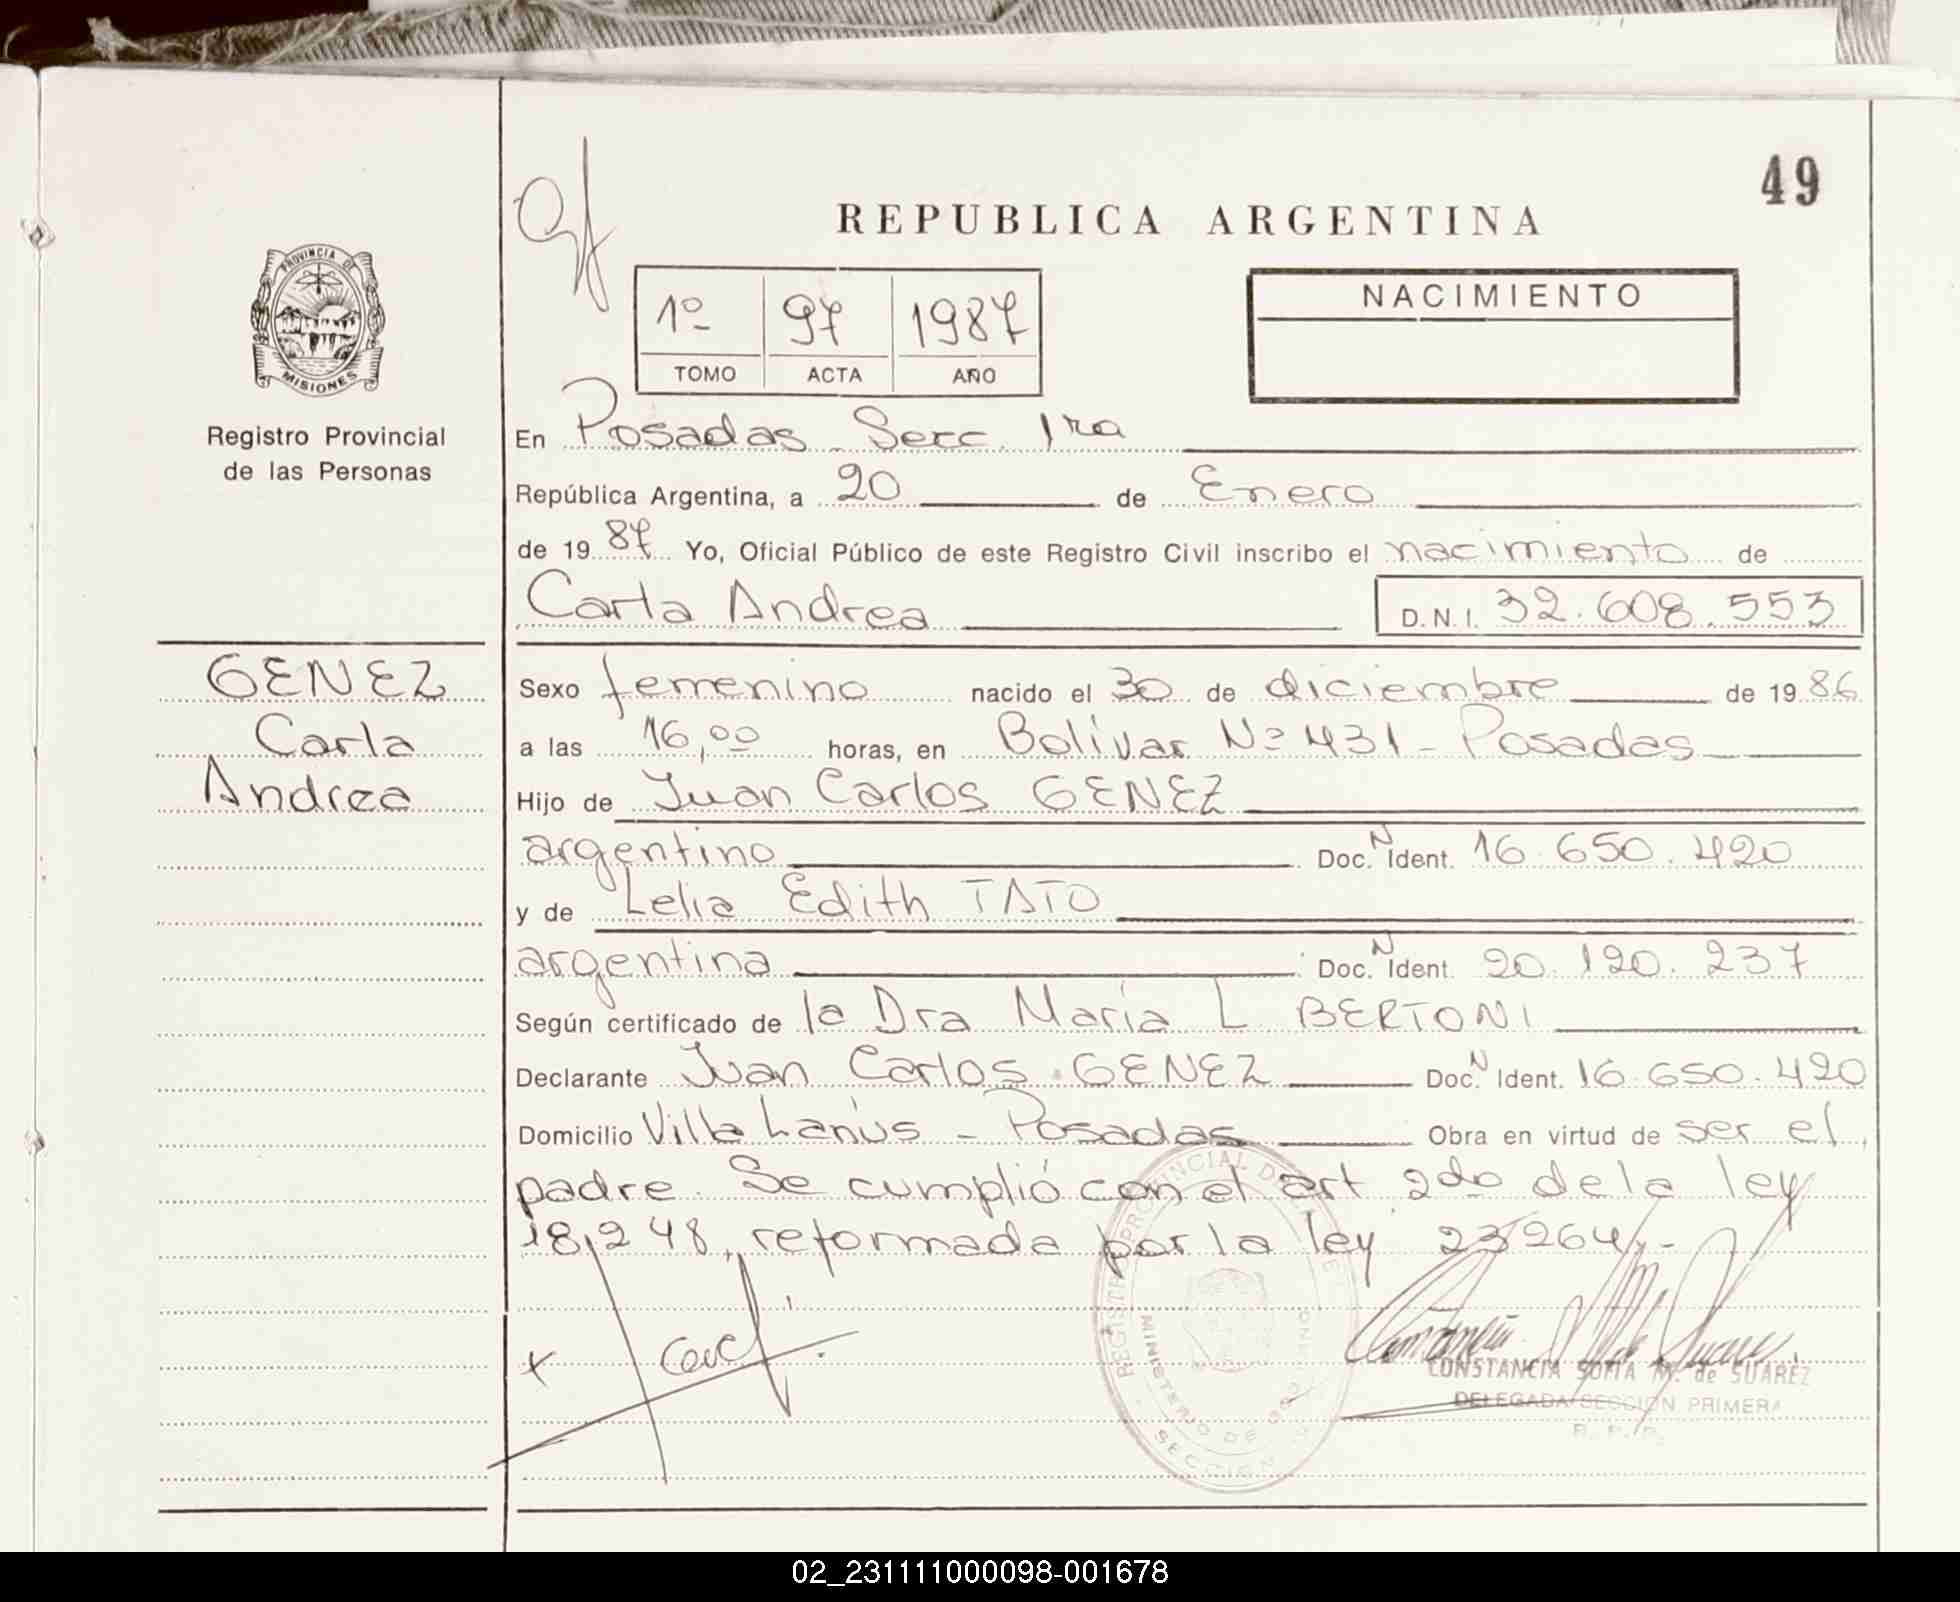 49
REPUBLICA ARGENTINA
PROVINCIA DE
MISIONES
1º 97 1987
TOMO ACTA AÑO
NACIMIENTO
Registro Provincial
de las Personas
En Posadas Secc. 1ra
República Argentina, a 20 de Enero
de 1987 Yo, Oficial Público de este Registro Civil inscribo el nacimiento de
Carla Andrea D.N.I. 32.608.553
GENEZ
Carla
Andrea
Sexo femenino nacido el 30 de diciembre de 1986
a las 16,00 horas, en Bolívar Nº 431 - Posadas
Hijo de Juan Carlos GENEZ
argentino Doc. N Ident. 16.650.420
y de Lelia Edith TATO
argentina Doc. N Ident. 20.120.237
Según certificado de la Dra María L BERTONI
Declarante Juan Carlos GENEZ Doc. N Ident. 16.650.420
Domicilio Villa Lanús - Posadas Obra en virtud de ser el
padre. Se cumplió con el art 2do de la ley
18,248, reformada por la ley 23264,-
REGISTRO PROVINCIAL DE
MINISTERIO DE GOBIERNO
SECCION
CONSTANCIA SOFIA M. de SUAREZ
DELEGADA SECCION PRIMERA
R. P. P.
02_231111000098-001678